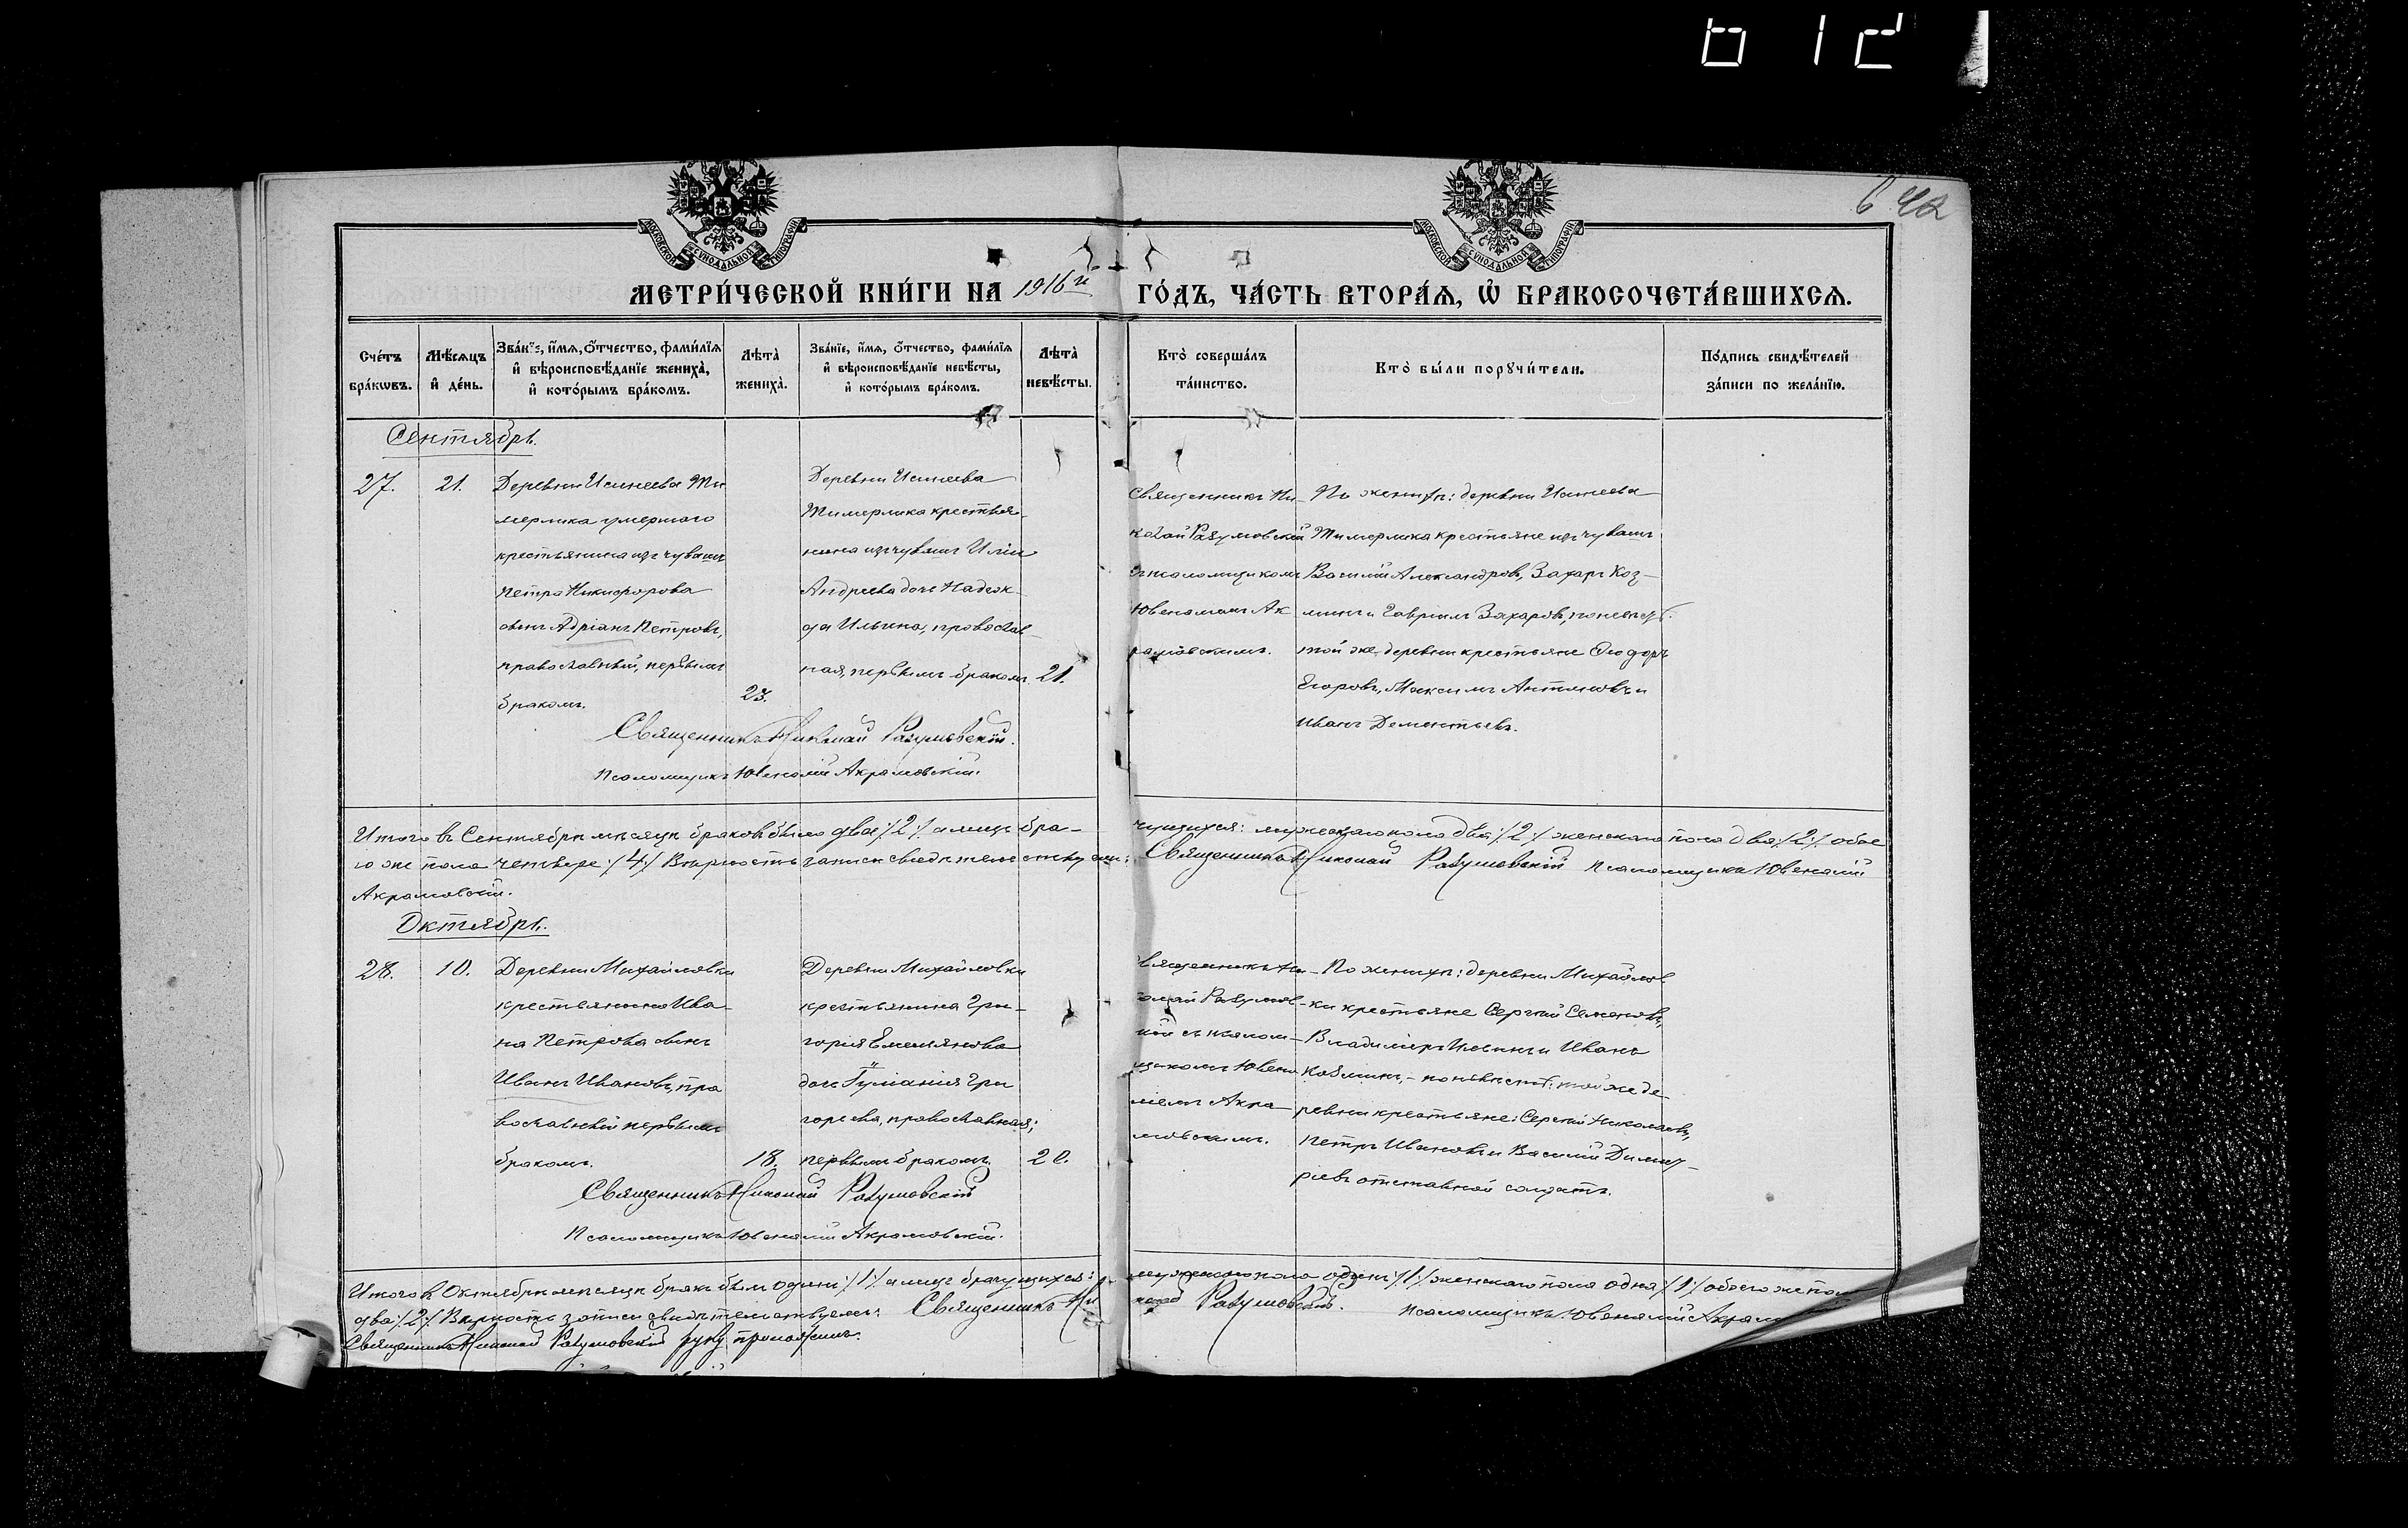 642
МОСКОВСКОЙ СѴНОДАЛЬНОЙ ТИПОГРАФІИ
МОСКОВСКОЙ СѴНОДАЛЬНОЙ ТИПОГРАФІИ
МЕТРИ́ЧЕСКОЙ КНИ́ГИ НА 1916й ГО́ДЪ, ЧА́СТЬ ВТОРА́Я, Ѡ҆ БРАКОСОЧЕТА́ВШИХСЯ.
Сче́тъ
бра́кѡвъ.
Мѣ́сяцъ
и҆ де́нь.
Зва́нїе, и҆́мя, ѻ҆́тчество, фами́лїя
и҆ вѣроисповѣ́данїе жениха̀,
и҆ кото́рымъ бра́комъ.
Лѣта̀
жениха̀.
Зва́нїе, и҆́мя, ѻ҆́тчество, фами́лїя
и҆ вѣроисповѣ́данїе невѣ́сты,
и҆ кото́рымъ бра́комъ.
Лѣта̀
невѣ́сты.
Кто̀ соверша́лъ
та́инство.
Кто̀ бы́ли порꙋчи́тели.
По́дпись свидѣ́телей
за́писи по жела́нїю.
Сентябрь.
27.
21.
Деревни Исинеева Ти
мерлика умершаго
крестьянина изъ чувашъ
Петра Никифорова
сынъ Адріанъ Петровъ,
православный, первымъ
бракомъ.
23.
Деревни Исинеева
Тимерлика крестья-
нина изъ чувашъ Иліи
Андреева дочь Надеж-
да Ильина, православ-
ная, первымъ бракомъ
21.
Священникъ Ни-
колай Разумовскій
съ псаломщикомъ
Ювеналіемъ Ак
рамовскимъ.
По женихѣ: деревни Исинеева
Тимерлика крестьяне изъ чувашъ
Василій Александровъ, Захаръ Коз-
минъ и Гавріилъ Захаровъ, по невѣст.
той же деревни крестьяне Ѳеодоръ
Егоровъ, Максимъ Антиповъ и
Иванъ Дементьевъ.
Священникъ Николай Разумовскій.
Псаломщикъ Ювеналій Акрамовскій.
Итого въ Сентябрѣ мѣсяцѣ браковъ было два /2/ а лицъ бра-
чущихся: мужескаго пола два /2/ женскаго пола два /2/ обое
го же пола четверо /4/ Вѣрность записи свидѣтельствуемъ:
Священникъ Николай Разумовскій Псаломщикъ Ювеналій
Акрамовскій.
Октябрь.
28.
10.
Деревни Михайловки
крестьянина Ива-
на Петрова сынъ
Иванъ Ивановъ, пра
вославный первымъ
бракомъ.
18.
Деревни Михайловки
крестьянина Гри-
горія Емельянова
дочь Іуліанія Гри
горьева, православная;
первымъ бракомъ.
20.
Священникъ Ни-
колай Разумов-
скій съ псалом-
щикомъ Ювена
ліемъ Акра-
мовскимъ.
По женихѣ: деревни Михайлов
ки крестьяне Сергій Семеновъ,
Владиміръ Ильинъ и Иванъ
Козминъ, - по невѣстѣ: той же де-
ревни крестьяне: Сергій Николаевъ,
Петръ Ивановъ и Василій Димит-
ріевъ отставной солдатъ.
Священникъ Николай Разумовскій
Псаломщикъ Ювеналій Акрамовскій.
Итого въ Октябрѣ мѣсяцѣ бракъ былъ одинъ /1/ а лицъ брачущихся:
мужескаго пола одинъ /1/ женскаго пола одна /1/ обоего же пола
два /2/ Вѣрность записи свидѣтельствуемъ: Священникъ Ни
колай Разумовскій. Псаломщикъ Ювеналій Акрамо
Священникъ Николай Разумовскій руку приложилъ.